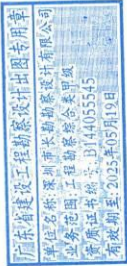 广东省建设工程勘察设计出图专用章
单位名称:深圳市长勘勘察设计有限公司
业务范围:工程勘察综合类甲级
资质证书编号:B144055545
有效期至:2025年05月19日